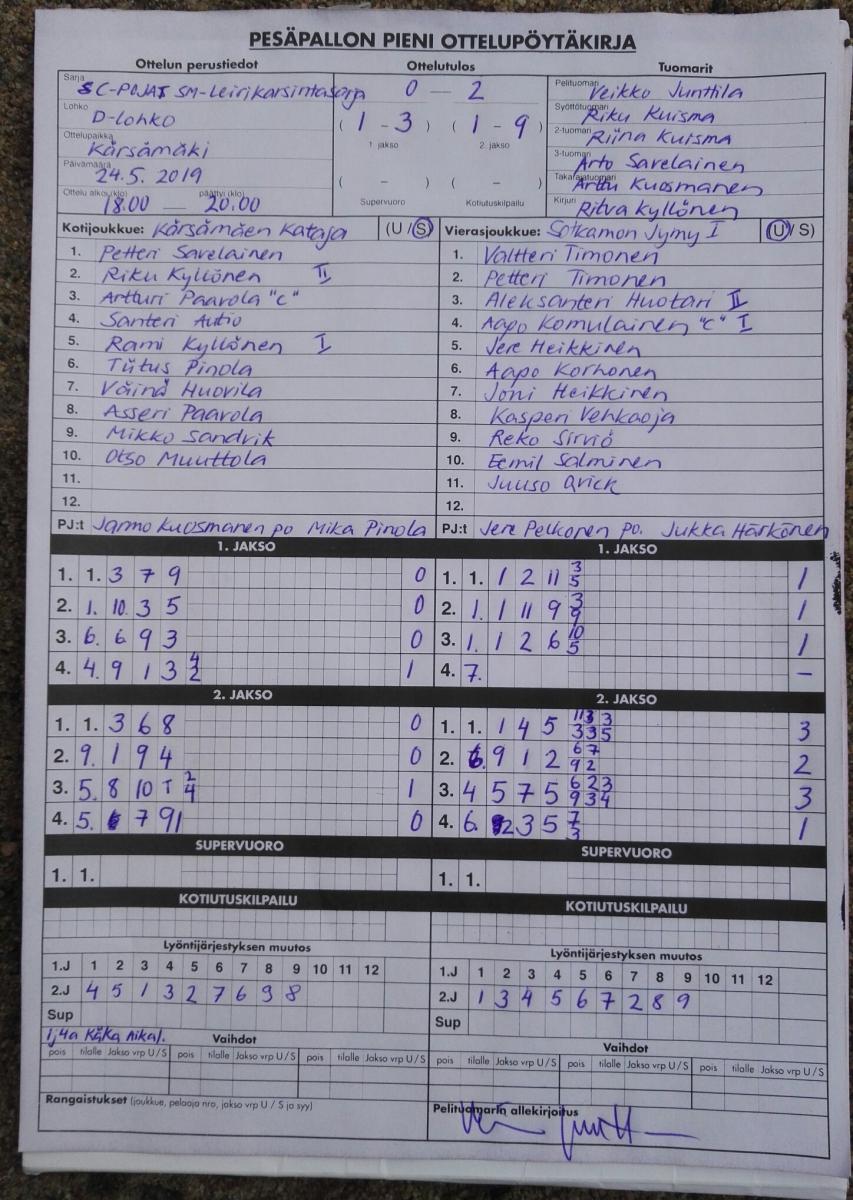 PESÄPALLON PIENI OTTELUPÖYTÄKIRJA
Ottelun perustiedot
Sarja C-POJAT SM-Leirikarsintasarja
Lohko D-lohko
Ottelupaikka Kärsämäki
Päivämäärä 24.5. 2019
Ottelu alkoi (klo) 18.00 — päättyi (klo) 20.00
Ottelutulos
0 — 2
( 1 - 3 ) ( 1 - 9 )
1. jakso 2. jakso
( - ) ( - )
Supervuoro Kotiutuskilpailu
Tuomarit
Pelituomari Veikko Junttila
Syöttötuomari Riku Kuisma
2-tuomari Riina Kuisma
3-tuomari Arto Savelainen
Takarajatuomari Arttu Kuosmanen
Kirjuri Ritva Kyllönen
Kotijoukkue: Kärsämäen Kataja (U / S)
1. Petteri Savelainen
2. Riku Kyllönen II
3. Artturi Paavola "C"
4. Santeri Autio
5. Rami Kyllönen I
6. Tiitus Pinola
7. Väinö Huovila
8. Asseri Paavola
9. Mikko Sandvik
10. Otso Muuttola
11.
12.
PJ:t Jarmo Kuosmanen po Mika Pinola
Vierasjoukkue: Sotkamon Jymy I (U / S)
1. Valtteri Timonen
2. Petteri Timonen
3. Aleksanteri Huotari II
4. Aapo Komulainen "C" I
5. Jere Heikkinen
6. Aapo Korhonen
7. Joni Heikkinen
8. Kasperi Vehkaoja
9. Reko Sirviö
10. Eemil Salminen
11. Juuso
12.
PJ:t Jere Pelkonen po. Jukka Härkönen
1. JAKSO
1. 1. 3 7 9 0
2. 1. 10. 3 5 0
3. 6. 6 9 3 0
4. 4. 9 1 3 4/2 1
2. JAKSO
1. 1. 3 6 8 0
2. 9. 1 9 4 0
3. 5. 8 10 T 2/4 1
4. 5. 7 91 0
SUPERVUORO
1. 1.
KOTIUTUSKILPAILU
Lyöntijärjestyksen muutos
1.J 1 2 3 4 5 6 7 8 9 10 11 12
2.J 4 5 1 3 2 7 6 9 8
Sup
1j4a Käka Aikal.
Vaihdot
pois tilalle Jakso vrp U / S pois tilalle Jakso vrp U / S pois tilalle Jakso vrp U / S
Rangaistukset (joukkue, pelaaja nro, jakso vrp U / S ja syy)
1. JAKSO
1. 1. 1 2 11 3/5 1
2. 1. 1 11 9 3/9 1
3. 1. 1 2 6 10/5 1
4. 7. –
2. JAKSO
1. 1. 1 4 5 11/3 3/3 3/5 3
2. 6. 9 1 2 6/9 7/2 2
3. 4 5 7 5 6/9 2/3 3/4 3
4. 6. 2 3 5 7/3 1
SUPERVUORO
1. 1.
KOTIUTUSKILPAILU
Lyöntijärjestyksen muutos
1.J 1 2 3 4 5 6 7 8 9 10 11 12
2.J 1 3 4 5 6 7 2 8 9
Sup
Vaihdot
pois tilalle Jakso vrp U / S pois tilalle Jakso vrp U / S pois tilalle Jakso vrp U / S
Pelituomarin allekirjoitus